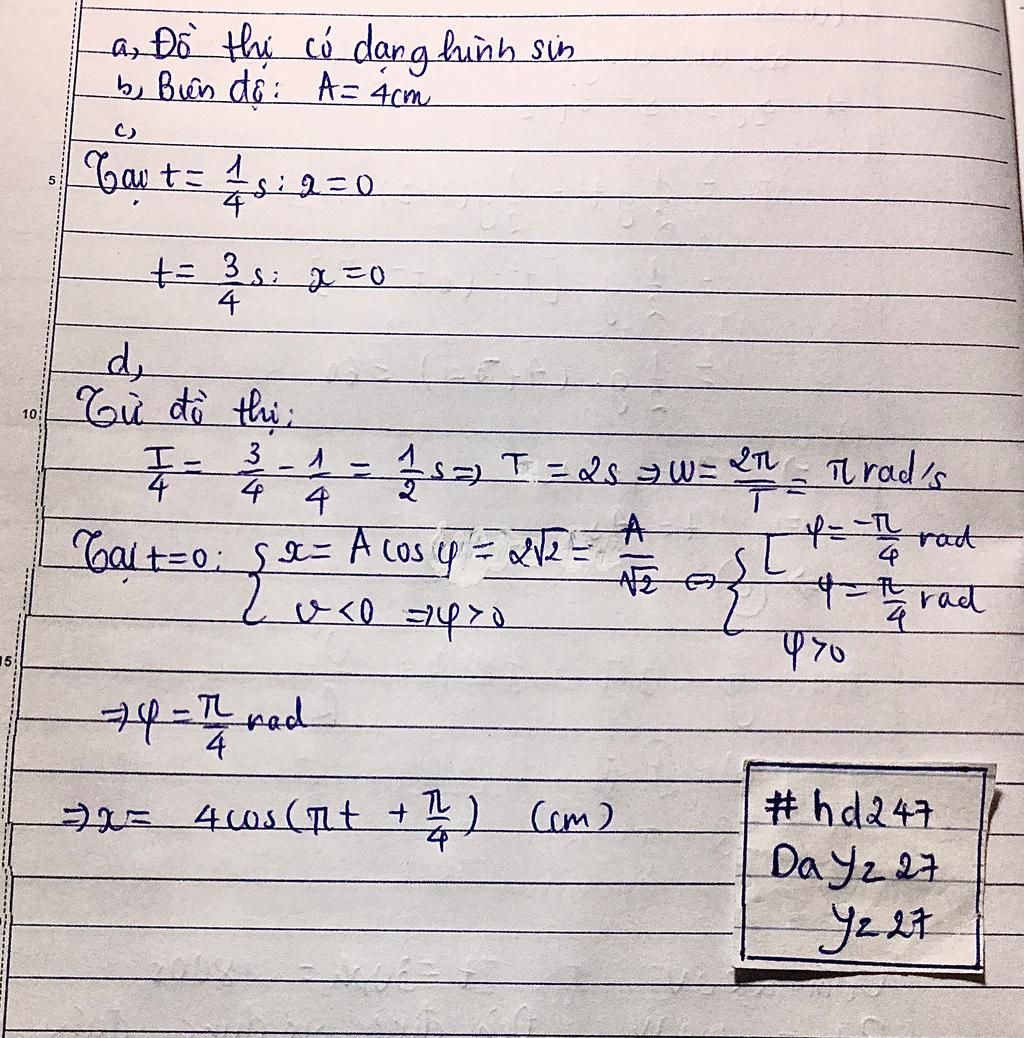 a, Đồ thị có dạng hình sin
b, Biên độ: A = 4cm
c,
5
Tại t = 1/4 s: x = 0
t = 3/4 s: x = 0
d,
10
Từ đồ thị:
T/4 = 3/4 - 1/4 = 1/2 s => T = 2s => ω = 2π/T = π rad/s
Tại t=0: { x = A cos φ = 2√2 = A/√2 ⇔ { [ φ = -π/4 rad
v < 0 => φ > 0 φ = π/4 rad
φ > 0
15
=> φ = π/4 rad
=> x = 4cos(πt + π/4) (cm)
#hd247
DaYz27
Yz27